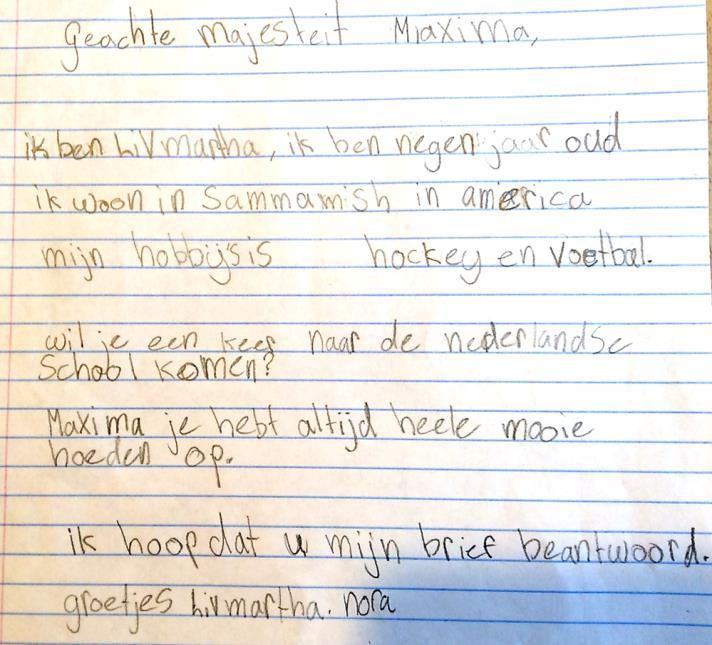 Geachte majesteit Maxima,
ik ben Livmartha, ik ben negen jaar oud
ik woon in Sammamish in america
mijn hobbijs is hockey en voetbal.
wil je een keer naar de nederlandse
School komen?
Maxima je hebt altijd heele mooie
hoeden op.
ik hoop dat u mijn brief beantwoord.
groetjes Livmartha. nora